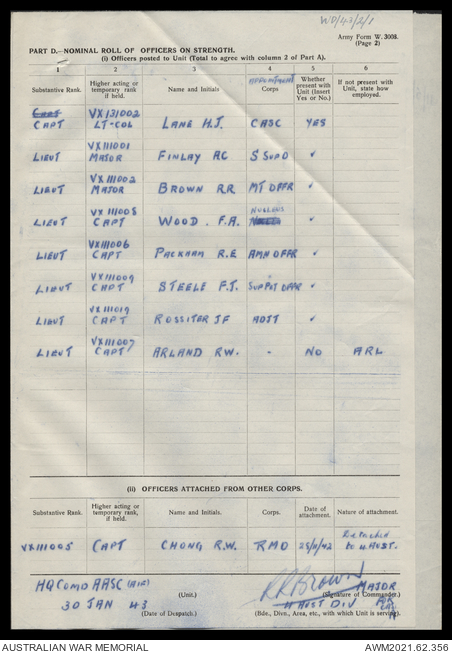 WD/43/2/1
Army Form W. 3008.
(Page 2)
PART D.—NOMINAL ROLL OF OFFICERS ON STRENGTH.
(i) Officers posted to Unit (Total to agree with column 2 of Part A).
1 2 3 4 5 6
Substantive Rank. Higher acting or temporary rank if held. Name and Initials APPOINTMENT Corps. Whether present with Unit (Insert Yes or No.) If not present with Unit, state how employed.
CAPT VX131002
CAPT LT-COL LANE H.J. CASC YES
VX111001
LIEUT MAJOR FINLAY AC S SUP O ✓
VX111002
LIEUT MAJOR BROWN RR MT OFFR ✓
VX111008
LIEUT CAPT WOOD. F.A. ✓
VX111006
LIEUT CAPT PACKHAM R.E AMN OFFR ✓
VX111009
LIEUT CAPT STEELE F.J. SUP PET OFFR ✓
VX111019
LIEUT CAPT ROSSITER JF ADJT ✓
VX111007
LIEUT CAPT ARLAND RW. - NO ARL
(ii) OFFICERS ATTACHED FROM OTHER CORPS.
Substantive Rank. Higher acting or temporary rank, if held. Name and Initials. Corps. Date of attachment. Nature of attachment.
VX111005 CAPT CHONG R.W. RMO Detached
HQ COMD AASC (Unit.)
RR Brown MAJOR
(Signature of Commander.)
30 JAN 43 4 AUST DIV
(Date of Despatch.) (Bde., Div., Area, etc., with which Unit is serving).
AUSTRALIAN WAR MEMORIAL AWM2021.62.356